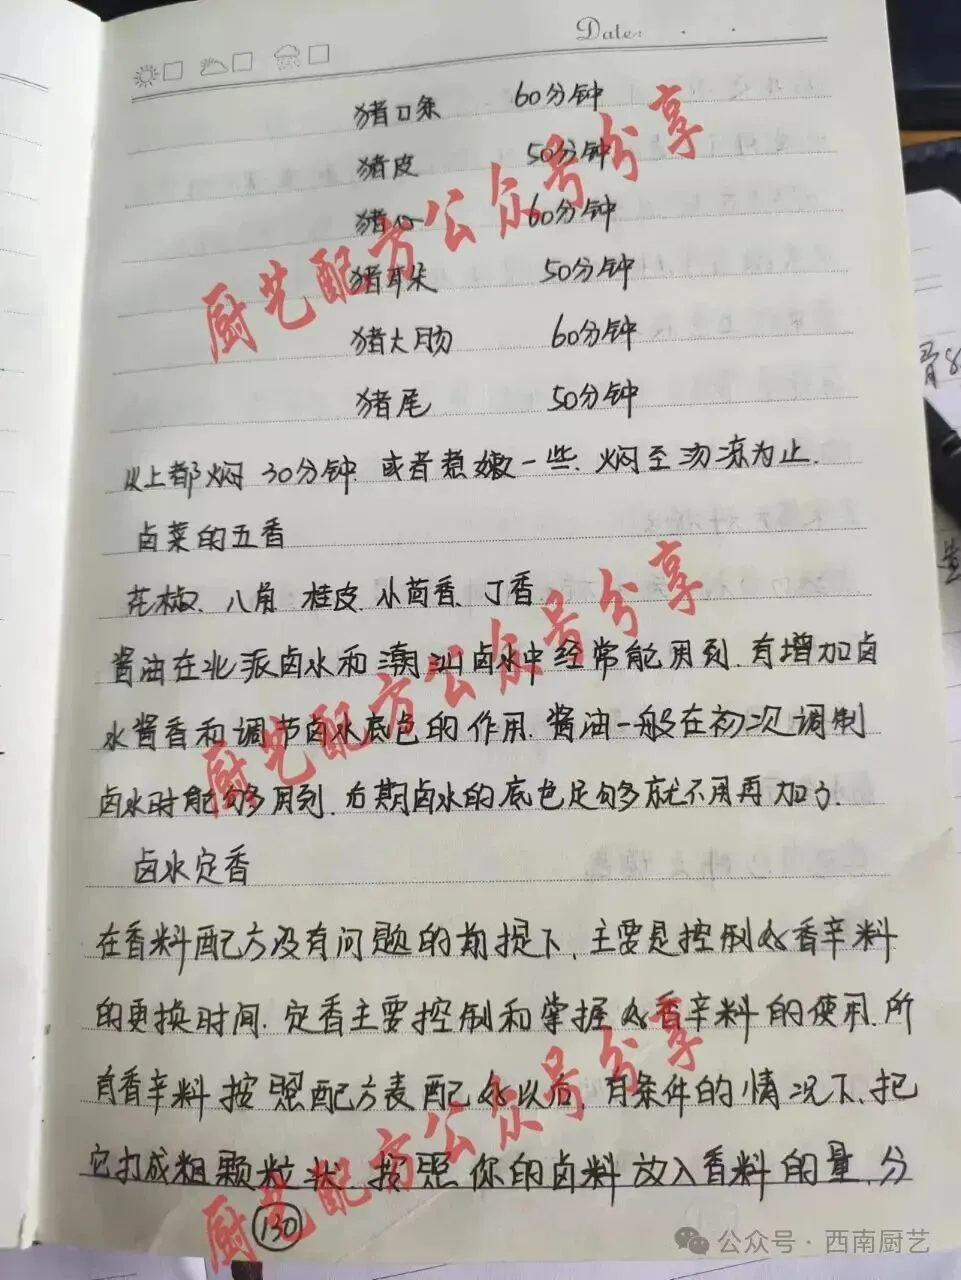 Date: . .
猪口条 60分钟
猪皮 50分钟
猪心 60分钟
猪耳朵 50分钟
猪大肠 60分钟
猪尾 50分钟
以上都焖30分钟.或者煮嫩一些.焖至汤冻为止.
卤菜的五香
花椒、八角 桂皮、小茴香、丁香
酱油在北派卤水和潮汕卤水中经常能用到.有增加卤
水酱香和调节卤水底色的作用.酱油一般在初次调制
卤水时能够用到.后期卤水的底色足够就不用再加了.
卤水定香
在香料配方没有问题的前提下、主要是控制好香辛料
的更换时间.定香主要控制和掌握好香辛料的使用.所
有香辛料按照配方表配好以后、有条件的情况下、把
它打成粗颗粒状、按照你的卤料放入香料的量、分
130
厨艺配方公众号分享
厨艺配方公众号分享
厨艺配方公众号分享
公众号·西南厨艺
骨